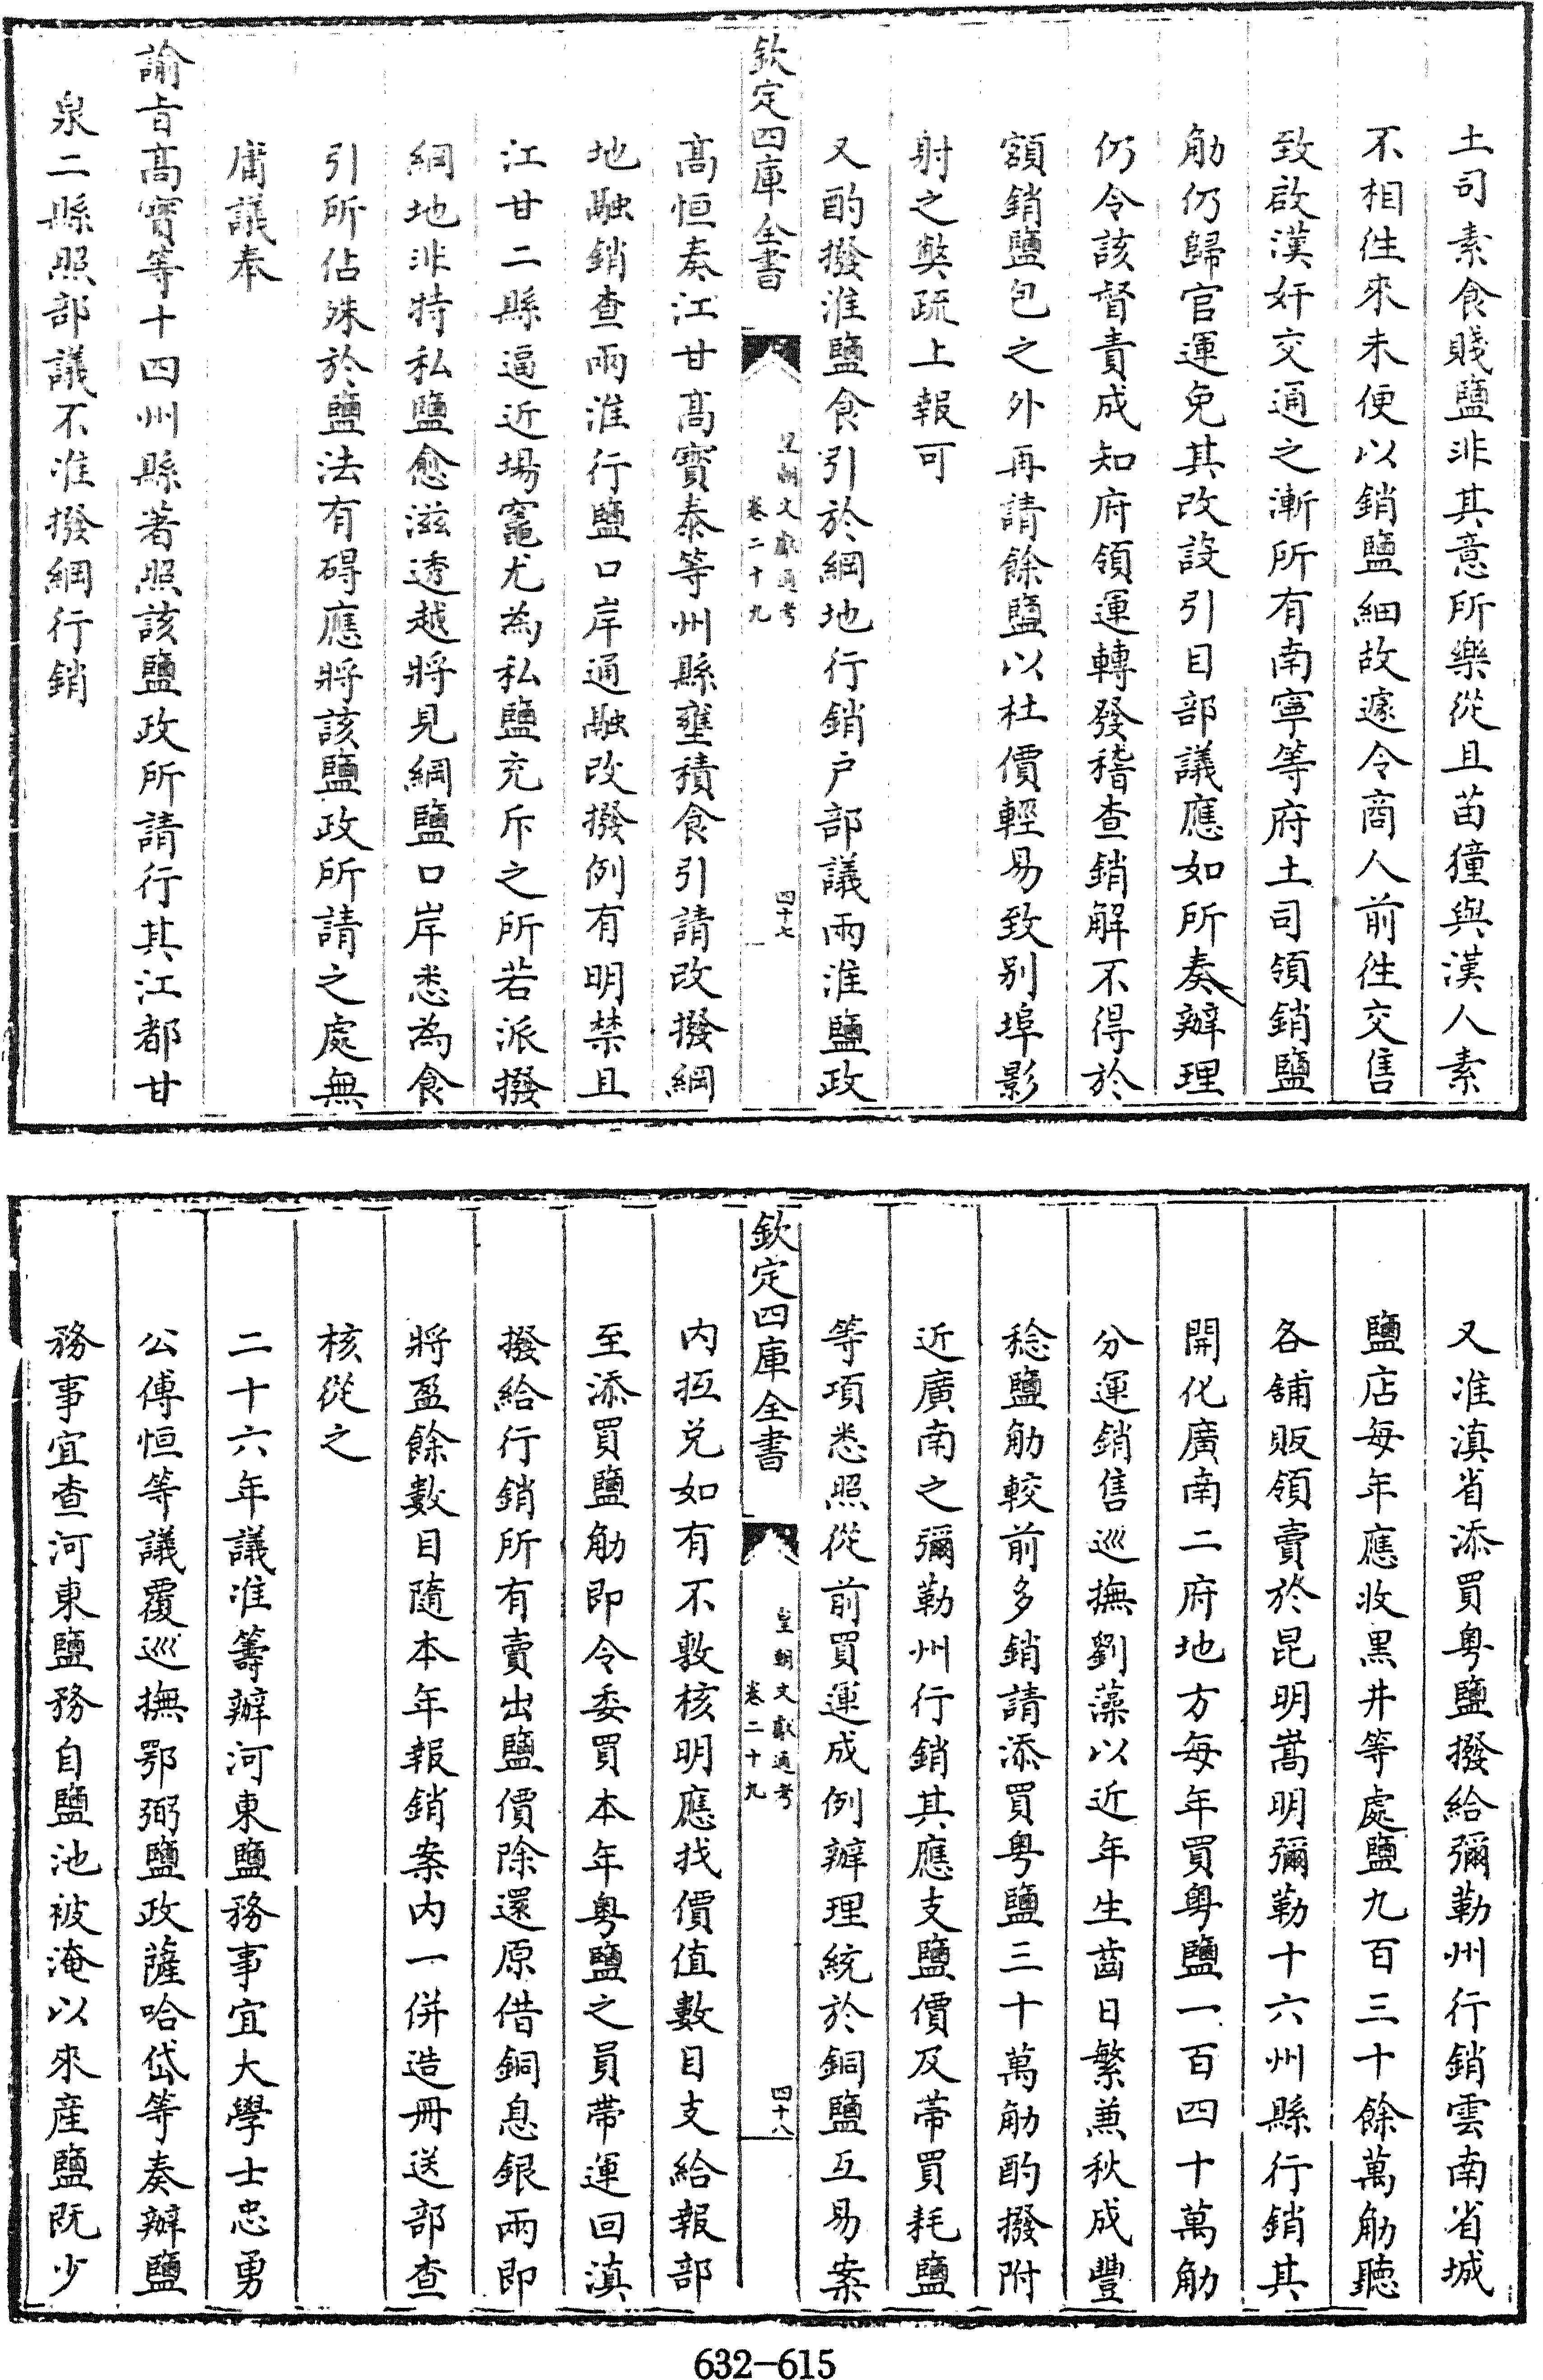 土司素食賤鹽非其意所樂從且苗獞與漢人素
不相徃來未便以銷鹽細故遽令商人前徃交售
致啟漢奸交通之漸所有南寧等府土司領銷鹽
觔仍歸官運免其改設引目部議應如所奏辦理
仍令該督責成知府領運轉發稽查銷解不得於
額銷鹽包之外再請餘鹽以杜價輕易致别埠影
射之弊疏上報可
又酌撥淮鹽食引於綱地行銷户部議兩淮鹽政
欽定四庫全書
皇朝文獻通考
卷二十九
四十七
髙恒奏江甘髙寳泰等州縣壅積食引請改撥綱
地融銷查兩淮行鹽口岸通融改撥例有明禁且
江甘二縣逼近場竈尤為私鹽充斥之所若派撥
綱地非特私鹽愈滋透越將見綱鹽口岸悉為食
引所佔殊於鹽法有碍應將該鹽政所請之處無
庸議奉
諭㫖髙寳等十四州縣著照該鹽政所請行其江都甘
泉二縣照部議不准撥綱行銷
又准滇省添買粤鹽撥給彌勒州行銷雲南省城
鹽店每年應收黒井等處鹽九百三十餘萬觔聽
各舖販領賣於昆明嵩明彌勒十六州縣行銷其
開化廣南二府地方每年買粤鹽一百四十萬觔
分運銷售巡撫劉藻以近年生齒日繁兼秋成豐
稔鹽觔較前多銷請添買粤鹽三十萬觔酌撥附
近廣南之彌勒州行銷其應支鹽價及帶買耗鹽
等項悉照從前買運成例辦理統於銅鹽互易案
欽定四庫全書
皇朝文獻通考
卷二十九
四十八
内抵兑如有不敷核明應找價值數目支給報部
至添買鹽觔即令委買本年粤鹽之員帶運回滇
撥給行銷所有賣出鹽價除還原借銅息銀兩即
將盈餘數目隨本年報銷案内一併造冊送部查
核從之
二十六年議准籌辦河東鹽務事宜大學士忠勇
公傅恒等議覆巡撫鄂弼鹽政薩哈岱等奏辦鹽
務事宜查河東鹽務自鹽池被淹以來産鹽既少
632-615